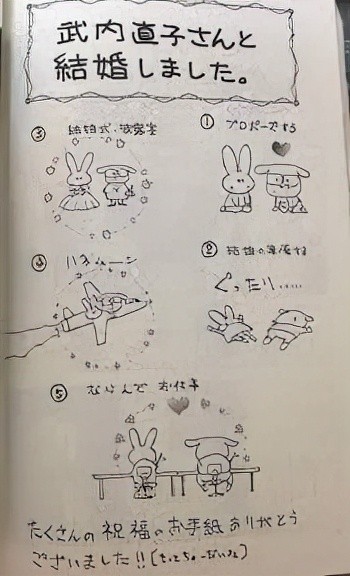 武内直子さんと
結婚しました。
① プロポーズする
② 結婚の準備する
ぐったり……
③ 結婚式・披露宴
④ ハネムーン
⑤ ならんで お仕事
たくさんの祝福のお手紙ありがとう
ございました!!